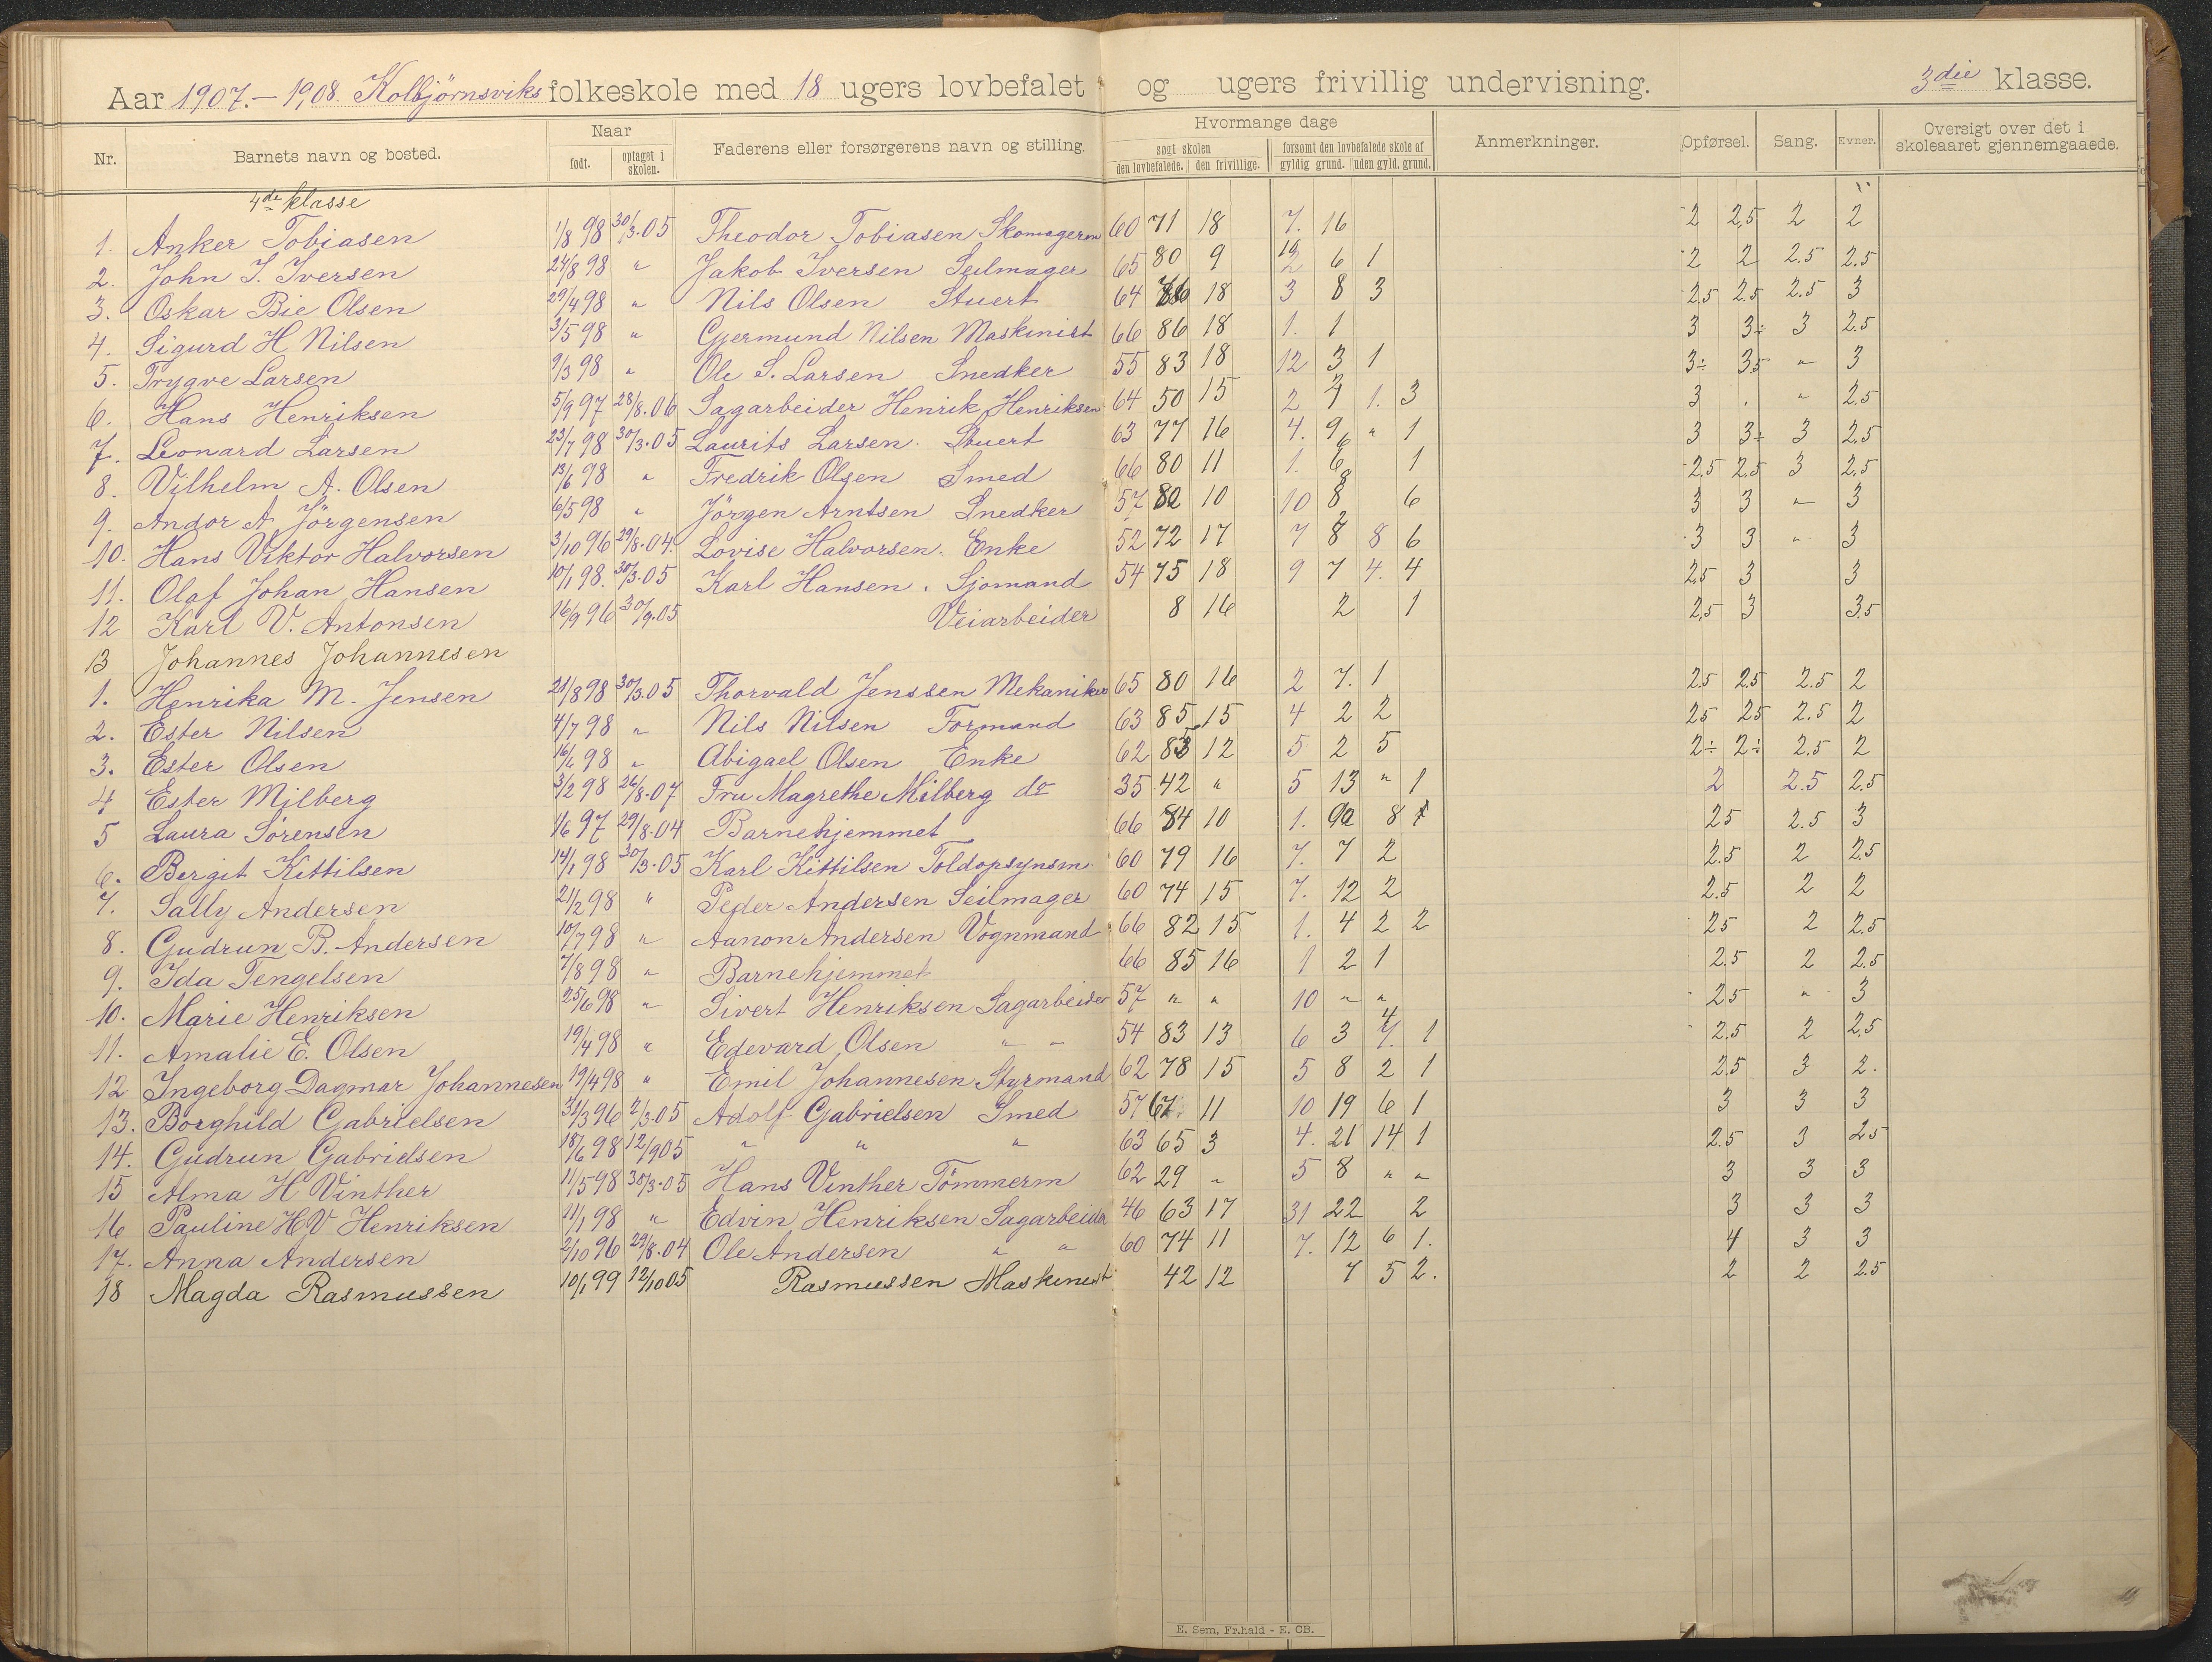 Aar 1907.- 1908. Kolbjörnsviks folkeskole med 18 ugers lovbefalet og ugers frivillig undervisning. 3die klasse.
Nr. Barnets navn og bosted. Naar født. optaget i skolen. Faderens eller forsørgerens navn og stilling. Hvormange dage søgt skolen den lovbefalede. den frivillige. forsømt den lovbefalede skole af gyldig grund. uden gyld. grund. Anmerkninger. Opførsel. Sang. Evner. Oversigt over det i skoleaaret gjennemgaaede.
4de klasse
1. Anker Tobiasen 1/8 98 30/3.05 Theodor Tobiasen Skomagerm 60 71 18 7. 16 2 2,5 2 2
2. John I. Iversen 24/8 98 " Jakob Iversen Seilmager 65 80 9 6 1 2 2 2.5 2.5
3. Oskar Bie Olsen 29/4 98 " Nils Olsen Stuert 64 18 3 8 3 2,5 2.5 2.5 3
4. Sigurd H Nilsen 3/5 98 " Gjermund Nilsen Maskinist 66 86 18 1. 1 3 3÷ 3 2.5
5. Trygve Larsen 9/3 98 " Ole S. Larsen Snedker 55 83 18 12 3 1 3÷ 3,5 " 3
6. Hans Henriksen 5/9 97 28/8.06 Sagarbeider Henrik Henriksen 64 50 15 2 1. 3 3 . " 2.5
7. Leonard Larsen 23/7 98 30/3.05 Laurits Larsen. Stuert 63 77 16 4. 9 " 1 3 3÷ 3 2.5
8. Vilhelm A. Olsen 13/6 98 " Fredrik Olsen Smed 66 80 11 1. 6 1 2,5 2.5 3 2,5
9. Andor A. Jörgensen 6/5 98 " Jörgen Arntsen Snedker 57 82 10 10 8 6 3 3 " 3
10. Hans Viktor Halvorsen 3/10 96 29/8.04. Lovise Halvorsen. Enke 52 72 17 7 8 8 6 3 3 " 3
11. Olaf Johan Hansen 10/1 98. 30/3.05 Karl Hansen. Sjomand 54 75 18 9 7 4. 4 2,5 3 3
12 Karl V. Antonsen 16/9 96 30/9.05 Veiarbeider 8 16 2 1 2,5 3 3.5
13 Johannes Johannesen
1. Henrika M. Jensen 21/8 98 30/3.05 Thorvald Jenssen Mekaniker 65 80 16 2 7. 1 2.5 2.5 2.5 2
2. Ester Nilsen 4/7 98 " Nils Nilsen Formand 63 85 15 4 2 2 2.5 2.5 2.5 2
3. Ester Olsen 16/6 98 " Abigael Olsen Enke 62 83 12 5 2 5 2÷ 2÷ 2.5 2
4 Ester Milberg 3/2 98 26/8.07 Fru Magrethe Milberg do 35 42 " 5 13 " 1 2 2.5 2.5
5 Laura Sörensen 1/6 97 29/8.04 Barnehjemmet 66 84 10 1. 8 2.5 2.5 3
6. Bergit Kittilsen 14/1 98 30/3.05 Karl Kittilsen Toldopsynsm. 60 79 16 7. 7 2 2.5 2 2.5
7. Sally Andersen 21/2 98 " Peder Andersen Seilmager 60 74 15 7. 12 2 2.5 2 2
8. Gudrun B. Andersen 10/7 98 " Aanon Andersen Vognmand 66 82 15 1. 4 2 2 2.5 2 2.5
9. Ida Tengelsen 7/8 98 " Barnehjemmet 66 85 16 1 2 1 2.5 2 2.5
10. Marie Henriksen 25/6 98 " Sivert Henriksen Sagarbeider 57 " " 10 " " 2,5 " 3
11. Amalie E. Olsen 19/4 98 " Edevard Olsen " " 54 83 13 6 3 1 2.5 2 2.5
12 Ingeborg Dagmar Johannesen 19/4 98 " Emil Johannesen Styrmand 62 78 15 5 8 2 1 2.5 3 2.
13. Borghild Gabrielsen 31/3 96 2/3.05 Adolf Gabrielsen Smed 57 67 11 10 19 6 1 3 3 3
14. Gudrun Gabrielsen 18/6 98 12/9 05 " " " 63 65 3 4. 21 14 1 2.5 3 2.5
15 Alma H Vinther 11/5 98 30/3.05 Hans Vinther Tömmerm 62 29 " 5 8 " " 3 3 3
16 Pauline H V Henriksen 11/1 98 " Edvin Henriksen Sagarbeider 46 63 17 31 22 2 3 3 3
17. Anna Andersen 2/10 96 29/8.04 Ole Andersen " " 60 74 11 7. 12 6 1. 4 3 3
18 Magda Rasmussen 10/1 99 12/10 05 Rasmussen Maskinist 42 12 7 5 2. 2 2 2.5
E. Sem, Fr.hald - E. CB.